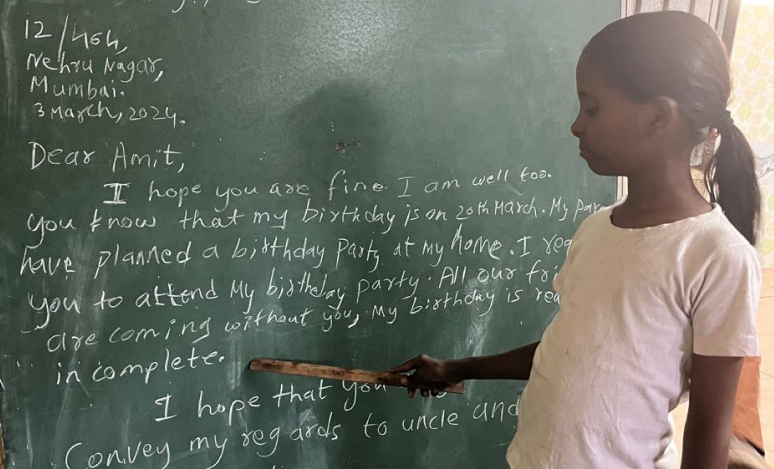 12/464,
Nehru Nagar,
Mumbai.
3 March, 2024.
Dear Amit,
I hope you are fine. I am well too.
you know that my birthday is on 20th March. My
have planned a birthday party at my home. I
you to attend My birthday party. All our
are coming without you, My birthday is
in complete.
I hope that you
Convey my regards to uncle and